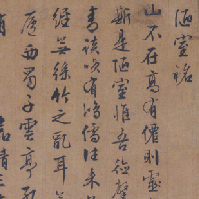 陋室銘
山不在高有僊則靈
斯是陋室惟吾德馨
青談咲有鴻儒往来
經無絲竹之亂耳
廬西蜀子雲亭孔